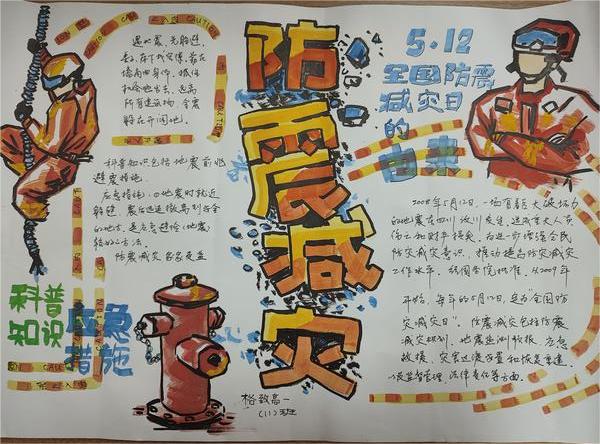 防震减灾
遇地震,先躲避,
桌子、床下找空隙,靠在
墙角曲身体,抓住
机会逃出去,远离
所有建筑物,余震
躲在开阔地。
科普知识包括地震前兆
避震措施。
应急措施:①地震时就近
躲避,震后迅速撤离到安全
的地方,是应急避险(地震)
较好的方法。
防震减灾
科普
知识
应急
措施
5·12
全国防震
减灾日
的
由来
2008年5月12日,一场有着巨大破坏力
的地震在四川汶川发生,造成重大人员
伤亡和财产损失。为进一步增强全民
防灾减灾意识,推动提高防灾减灾
工作水平,经国务院批准,从2009年
开始,每年的5月12日,定为“全国防
灾减灾日”。防震减灾包括防震
减灾规划、地震监测预报、应急
救援、灾害过渡安置和恢复重建
以及监督管理、法律责任等方面。
格致高一
(11)班